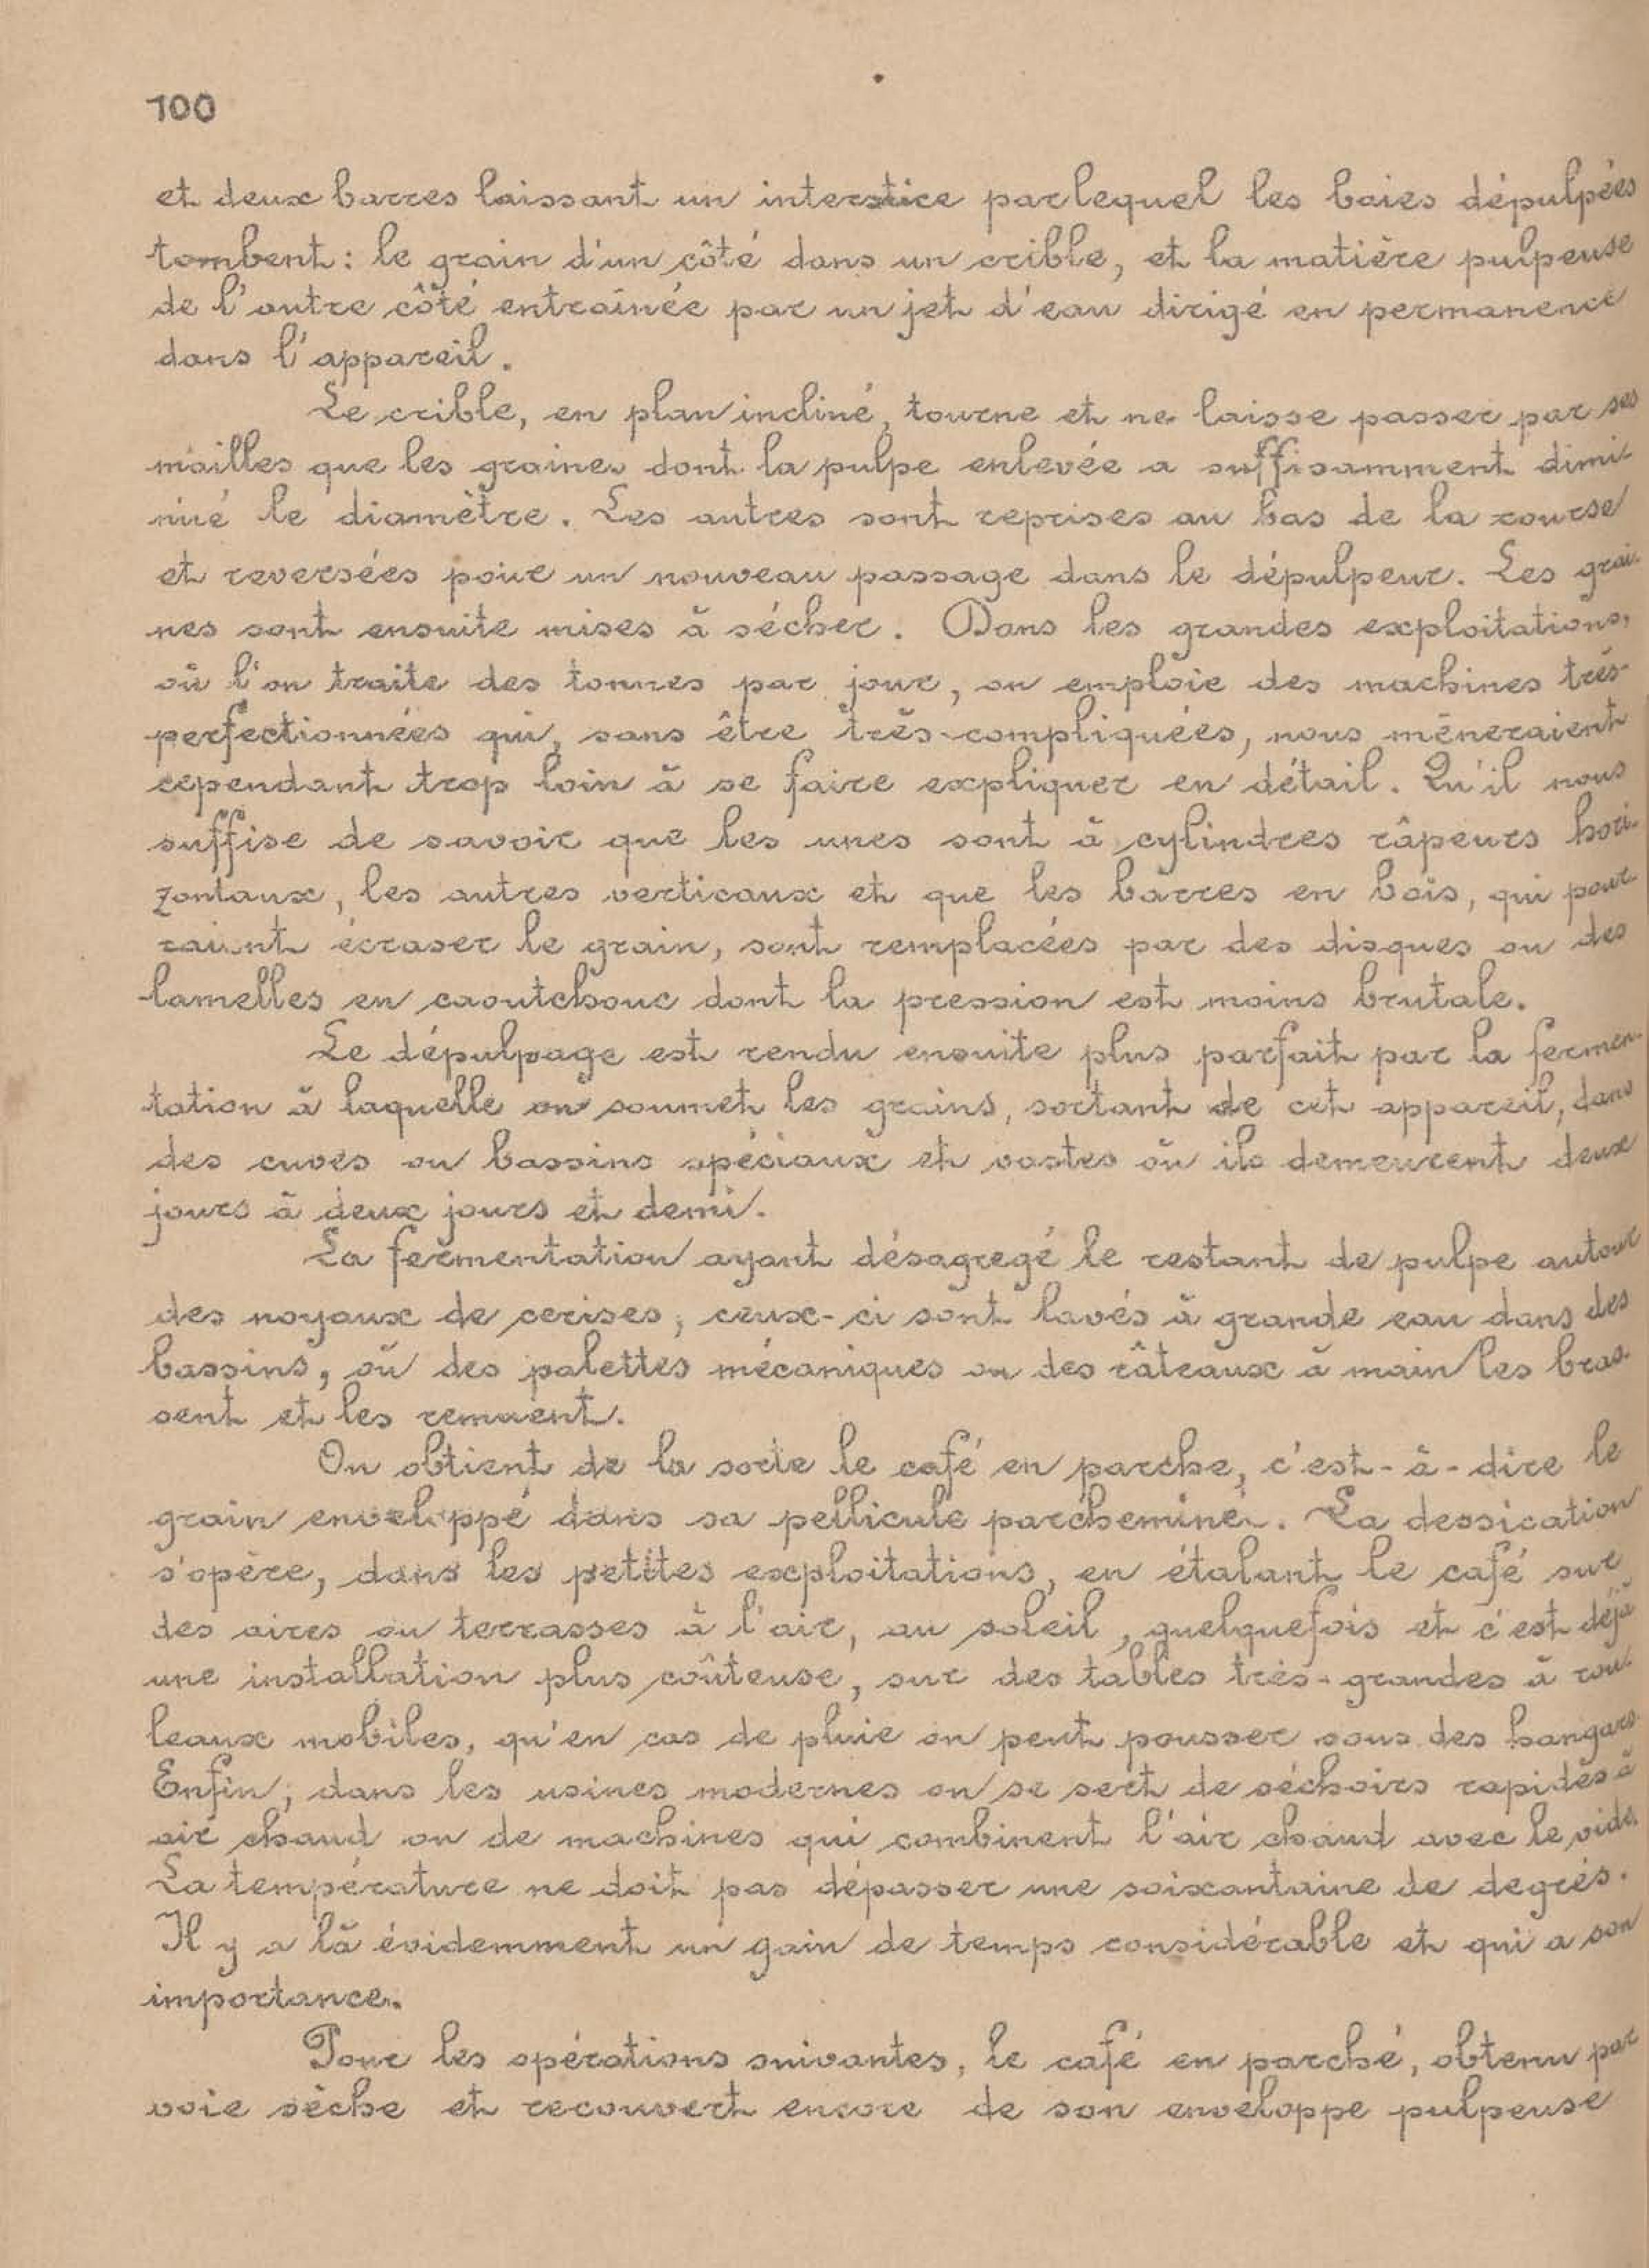 100
et deux barres laissant un interstice par lequel les baies dépulpées
tombent : le grain d'un côté dans un crible, et la matière pulpeuse
de l'autre côté entraînée par un jet d'eau dirigé en permanence
dans l'appareil.
Le crible, en plan incliné, tourne et ne laisse passer par ses
mailles que les graines dont la pulpe enlevée a suffisamment dimi-
nué le diamètre. Les autres sont reprises au bas de la course
et reversées pour un nouveau passage dans le dépulpeur. Les grai-
nes sont ensuite mises à sécher. Dans les grandes exploitations,
où l'on traite des tonnes par jour, on emploie des machines très-
perfectionnées qui, sans être très-compliquées, nous mèneraient
cependant trop loin à se faire expliquer en détail. Qu'il nous
suffise de savoir que les unes sont à cylindres râpeurs hori-
zontaux, les autres verticaux et que les barres en bois, qui pour-
raient écraser le grain, sont remplacées par des disques ou des
lamelles en caoutchouc dont la pression est moins brutale.
Le dépulpage est rendu ensuite plus parfait par la fermen-
tation à laquelle on soumet les grains, sortant de cet appareil, dans
des cuves ou bassins spéciaux et vastes où ils demeurent deux
jours à deux jours et demi.
La fermentation ayant désagregé le restant de pulpe autour
des noyaux de cerises, ceux-ci sont lavés à grande eau dans des
bassins, où des palettes mécaniques ou des râteaux à main les bras-
sent et les remuent.
On obtient de la sorte le café en parche, c'est-à-dire le
grain enveloppé dans sa pellicule parcheminée. La dessication
s'opère, dans les petites exploitations, en étalant le café sur
des aires ou terrasses à l'air, au soleil, quelquefois et c'est déjà
une installation plus coûteuse, sur des tables très-grandes à rou-
leaux mobiles, qu'en cas de pluie on peut pousser sous des hangars.
Enfin, dans les usines modernes on se sert de séchoirs rapides à
air chaud ou de machines qui combinent l'air chaud avec le vide.
La température ne doit pas dépasser une soixantaine de degrés.
Il y a là évidemment un gain de temps considérable et qui a son
importance.
Pour les opérations suivantes, le café en parché, obtenu par
voie sèche et recouvert encore de son enveloppe pulpeuse